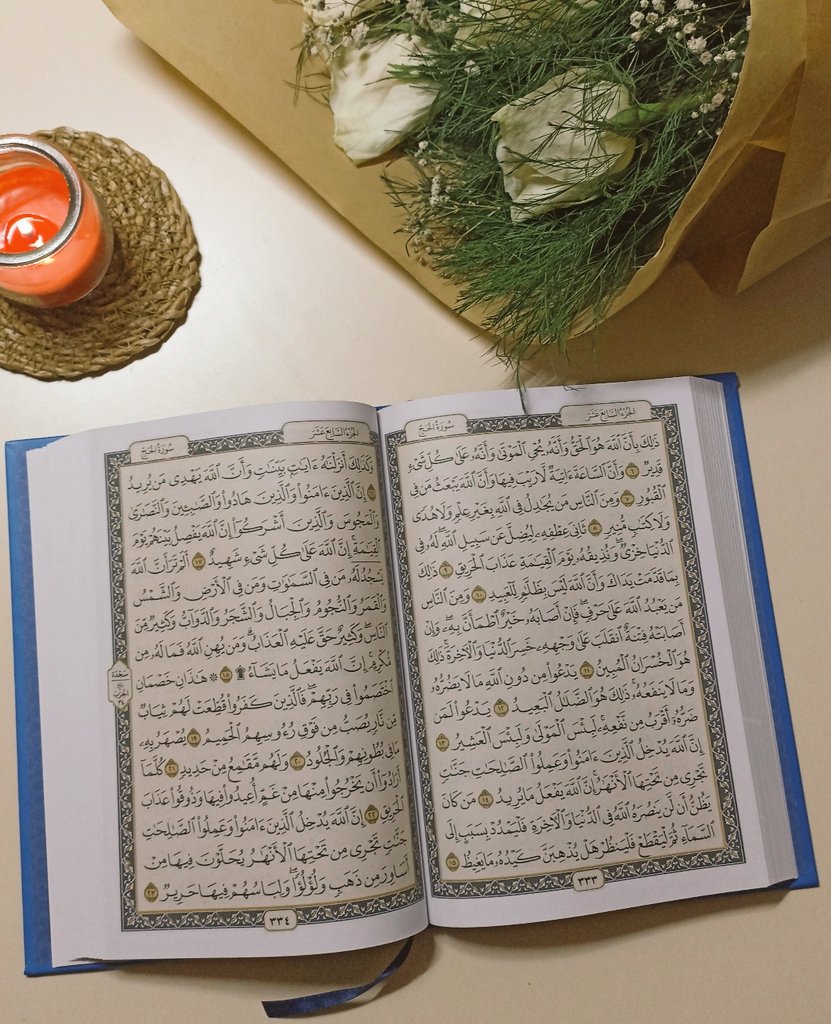 الجزء السابع عشر
سورة الحج
ذَٰلِكَ بِأَنَّ ٱللَّهَ هُوَ ٱلْحَقُّ وَأَنَّهُۥ يُحْىِ ٱلْمَوْتَىٰ وَأَنَّهُۥ عَلَىٰ كُلِّ شَىْءٍ
قَدِيرٌ ٦ وَأَنَّ ٱلسَّاعَةَ ءَاتِيَةٌ لَّا رَيْبَ فِيهَا وَأَنَّ ٱللَّهَ يَبْعَثُ مَن فِى
ٱلْقُبُورِ ٧ وَمِنَ ٱلنَّاسِ مَن يُجَٰدِلُ فِى ٱللَّهِ بِغَيْرِ عِلْمٍ وَلَا هُدًى
وَلَا كِتَٰبٍ مُّنِيرٍ ٨ ثَانِىَ عِطْفِهِۦ لِيُضِلَّ عَن سَبِيلِ ٱللَّهِ لَهُۥ فِى
ٱلدُّنْيَا خِزْىٌ وَنُذِيقُهُۥ يَوْمَ ٱلْقِيَٰمَةِ عَذَابَ ٱلْحَرِيقِ ٩ ذَٰلِكَ
بِمَا قَدَّمَتْ يَدَاكَ وَأَنَّ ٱللَّهَ لَيْسَ بِظَلَّٰمٍ لِّلْعَبِيدِ ١٠ وَمِنَ ٱلنَّاسِ
مَن يَعْبُدُ ٱللَّهَ عَلَىٰ حَرْفٍ فَإِنْ أَصَابَهُۥ خَيْرٌ ٱطْمَأَنَّ بِهِۦ وَإِنْ
أَصَابَتْهُ فِتْنَةٌ ٱنقَلَبَ عَلَىٰ وَجْهِهِۦ خَسِرَ ٱلدُّنْيَا وَٱلْءَاخِرَةَ ذَٰلِكَ
هُوَ ٱلْخُسْرَانُ ٱلْمُبِينُ ١١ يَدْعُوا۟ مِن دُونِ ٱللَّهِ مَا لَا يَضُرُّهُۥ
وَمَا لَا يَنفَعُهُۥ ذَٰلِكَ هُوَ ٱلضَّلَٰلُ ٱلْبَعِيدُ ١٢ يَدْعُوا۟ لَمَن
ضَرُّهُۥٓ أَقْرَبُ مِن نَّفْعِهِۦ لَبِئْسَ ٱلْمَوْلَىٰ وَلَبِئْسَ ٱلْعَشِيرُ ١٣
إِنَّ ٱللَّهَ يُدْخِلُ ٱلَّذِينَ ءَامَنُوا۟ وَعَمِلُوا۟ ٱلصَّٰلِحَٰتِ جَنَّٰتٍ
تَجْرِى مِن تَحْتِهَا ٱلْأَنْهَٰرُ إِنَّ ٱللَّهَ يَفْعَلُ مَا يُرِيدُ ١٤ مَن كَانَ
يَظُنُّ أَن لَّن يَنصُرَهُ ٱللَّهُ فِى ٱلدُّنْيَا وَٱلْءَاخِرَةِ فَلْيَمْدُدْ بِسَبَبٍ إِلَى
ٱلسَّمَآءِ ثُمَّ لْيَقْطَعْ فَلْيَنظُرْ هَلْ يُذْهِبَنَّ كَيْدُهُۥ مَا يَغِيظُ ١٥
٣٣٣
الجزء السابع عشر
سورة الحج
وَكَذَٰلِكَ أَنزَلْنَٰهُ ءَايَٰتٍۭ بَيِّنَٰتٍ وَأَنَّ ٱللَّهَ يَهْدِى مَن يُرِيدُ
١٦ إِنَّ ٱلَّذِينَ ءَامَنُوا۟ وَٱلَّذِينَ هَادُوا۟ وَٱلصَّٰبِـِٔينَ وَٱلنَّصَٰرَىٰ
وَٱلْمَجُوسَ وَٱلَّذِينَ أَشْرَكُوٓا۟ إِنَّ ٱللَّهَ يَفْصِلُ بَيْنَهُمْ يَوْمَ
ٱلْقِيَٰمَةِ إِنَّ ٱللَّهَ عَلَىٰ كُلِّ شَىْءٍ شَهِيدٌ ١٧ أَلَمْ تَرَ أَنَّ ٱللَّهَ
يَسْجُدُ لَهُۥ مَن فِى ٱلسَّمَٰوَٰتِ وَمَن فِى ٱلْأَرْضِ وَٱلشَّمْسُ
وَٱلْقَمَرُ وَٱلنُّجُومُ وَٱلْجِبَالُ وَٱلشَّجَرُ وَٱلدَّوَآبُّ وَكَثِيرٌ مِّنَ
ٱلنَّاسِ وَكَثِيرٌ حَقَّ عَلَيْهِ ٱلْعَذَابُ وَمَن يُهِنِ ٱللَّهُ فَمَا لَهُۥ مِن
مُّكْرِمٍ إِنَّ ٱللَّهَ يَفْعَلُ مَا يَشَآءُ ۩ ١٨ ۞ هَٰذَانِ خَصْمَانِ
ٱخْتَصَمُوا۟ فِى رَبِّهِمْ فَٱلَّذِينَ كَفَرُوا۟ قُطِّعَتْ لَهُمْ ثِيَابٌ
مِّن نَّارٍ يُصَبُّ مِن فَوْقِ رُءُوسِهِمُ ٱلْحَمِيمُ ١٩ يُصْهَرُ بِهِۦ
مَا فِى بُطُونِهِمْ وَٱلْجُلُودُ ٢٠ وَلَهُم مَّقَٰمِعُ مِنْ حَدِيدٍ ٢١ كُلَّمَآ
أَرَادُوٓا۟ أَن يَخْرُجُوا۟ مِنْهَا مِنْ غَمٍّ أُعِيدُوا۟ فِيهَا وَذُوقُوا۟ عَذَابَ
ٱلْحَرِيقِ ٢٢ إِنَّ ٱللَّهَ يُدْخِلُ ٱلَّذِينَ ءَامَنُوا۟ وَعَمِلُوا۟ ٱلصَّٰلِحَٰتِ
جَنَّٰتٍ تَجْرِى مِن تَحْتِهَا ٱلْأَنْهَٰرُ يُحَلَّوْنَ فِيهَا مِنْ
أَسَاوِرَ مِن ذَهَبٍ وَلُؤْلُؤًا وَلِبَاسُهُمْ فِيهَا حَرِيرٌ ٢٣
سجدة
٣٣٤